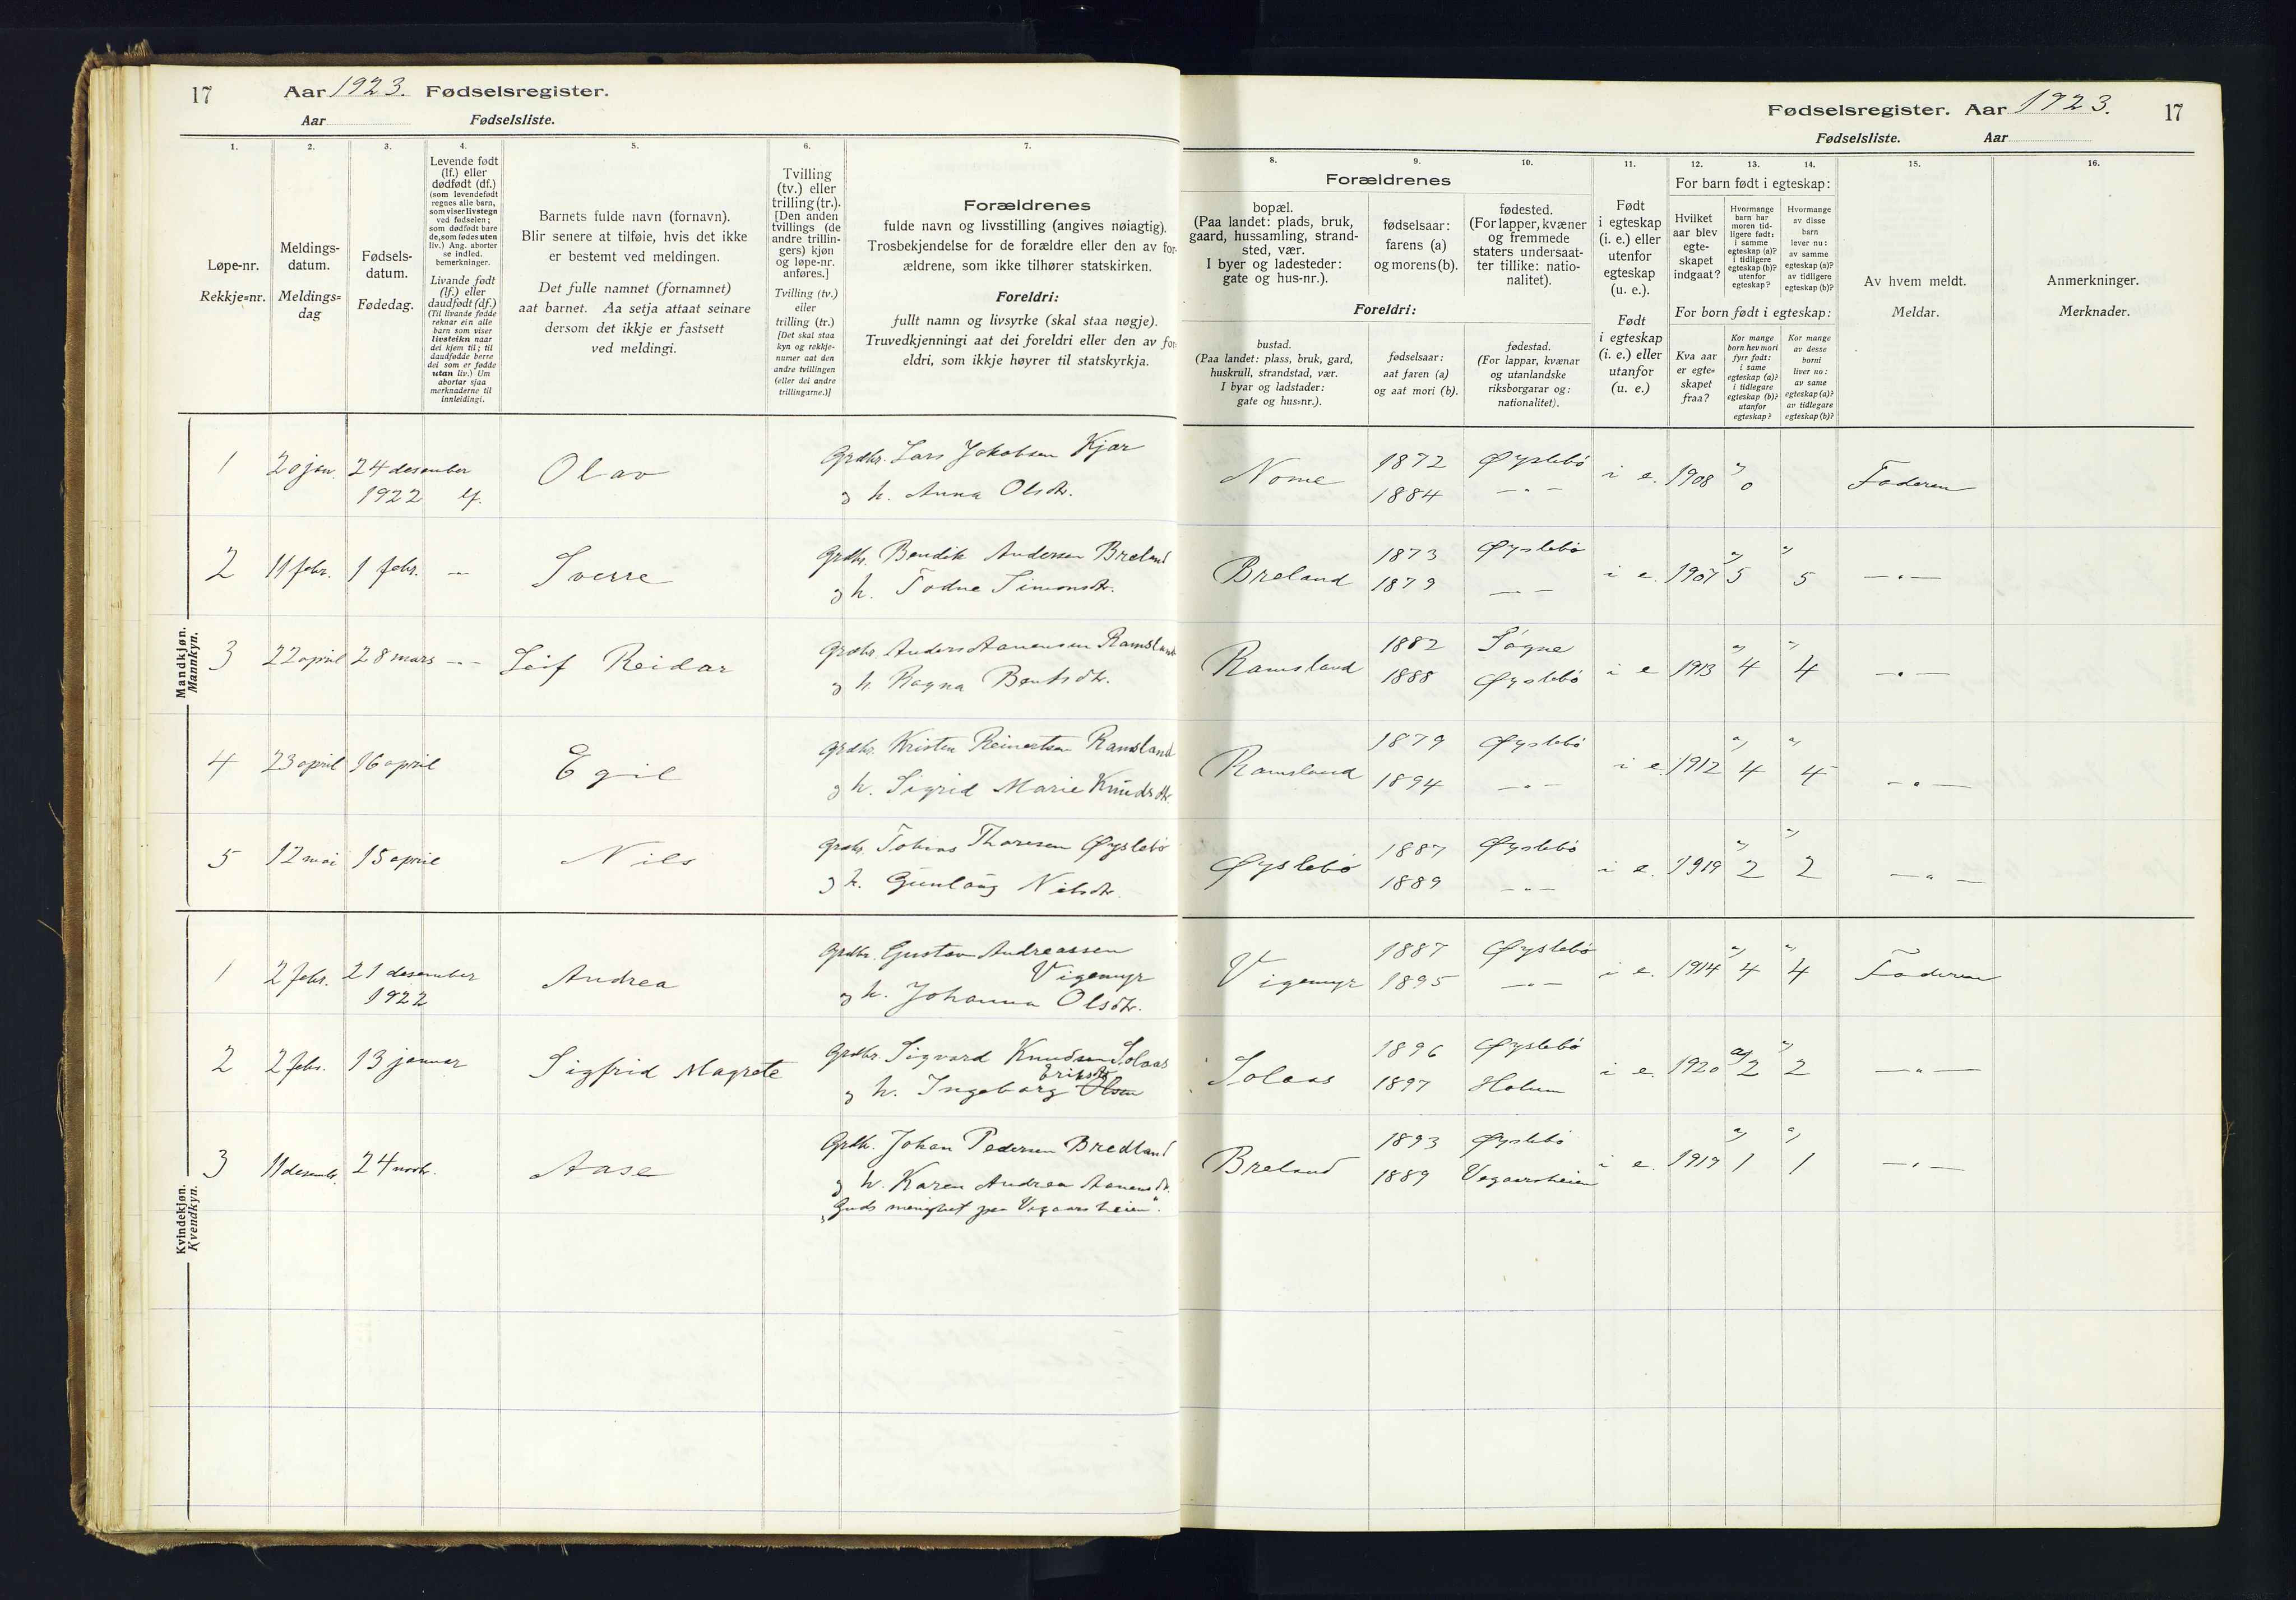 17 Aar 1923. Fødselsregister.
Aar Fødselsliste.
Fødselsregister. Aar 1923. 17
Fødselsliste. Aar
1.
Løpe-nr.
Rekkje=nr.
2.
Meldings-
datum.
Meldings=
dag
3.
Fødsels-
datum.
Fødedag.
4.
Levende født
(lf.) eller
dødfødt (df.)
(som levendefødt
regnes alle barn,
som viser livstegn
ved fødselen;
som dødfødt bare
de, som fødes uten
liv.) Ang. aborter
se indled.
bemerkninger.
Livande født
(lf.) eller
daudfødt (df.)
(Til livande fødde
reknar ein alle
barn som viser
livsteikn naar
dei kjem til; til
daudfødde berre
dei som er fødde
utan liv.) Um
abortar sjaa
merknaderne til
innleidingi.
5.
Barnets fulde navn (fornavn).
Blir senere at tilføie, hvis det ikke
er bestemt ved meldingen.
Det fulle namnet (fornamnet)
aat barnet. Aa setja attaat seinare
dersom det ikkje er fastsett
ved meldingi.
6.
Tvilling
(tv.) eller
trilling (tr.).
[Den anden
tvillings (de
andre trillin-
gers) kjøn
og løpe-nr.
anføres.]
Tvilling (tv.)
eller
trilling (tr.)
[Det skal staa
kyn og rekkje-
numer aat den
andre tvillingen
(eller dei andre
trillingarne.)]
7.
Forældrenes
fulde navn og livsstilling (angives nøiagtig).
Trosbekjendelse for de forældre eller den av for-
ældrene, som ikke tilhører statskirken.
Foreldri:
fullt namn og livsyrke (skal staa nøgje).
Truvedkjenningi aat dei foreldri eller den av for-
eldri, som ikkje høyrer til statskyrkja.
Forældrenes
8.
bopæl.
(Paa landet: plads, bruk,
gaard, hussamling, strand-
sted, vær.
I byer og ladesteder:
gate og hus-nr.).
9.
fødselsaar:
farens (a)
og morens (b).
10.
fødested.
(For lapper, kvæner
og fremmede
staters undersaat-
ter tillike: natio-
nalitet).
Foreldri:
bustad.
(Paa landet: plass, bruk, gard,
huskrull, strandstad, vær.
I byar og ladstader:
gate og hus=nr.).
fødselsaar:
aat faren (a)
og aat mori (b).
fødestad.
(For lappar, kvænar
og utanlandske
riksborgarar og:
nationalitet).
11.
Født
i egteskap
(i. e.) eller
utenfor
egteskap
(u. e.).
Født
i egteskap
(i. e.) eller
utanfor
(u. e.)
12. 13. 14.
For barn født i egteskap:
Hvilket
aar blev
egte-
skapet
indgaat?
Hvormange
barn har
moren tid-
ligere født:
i samme
egteskap (a)?
i tidligere
egteskap (b)?
utenfor
egteskap?
Hvormange
av disse
barn
lever nu:
av samme
egteskap (a)?
av tidligere
egteskap (b)?
For born født i egteskap:
Kva aar
er egte=
skapet
fraa?
Kor mange
born hev mori
fyrr født:
i same
egteskap (a)?
i tidlegare
egteskap (b)?
utanfor
egteskap?
Kor mange
av desse
borni
liver no:
av same
egteskap (a)?
av tidlegare
egteskap (b)?
15.
Av hvem meldt.
Meldar.
16.
Anmerkninger.
Merknader.
Mandkjøn.
Mannkyn.
1 20 jan. 24 desember Olav Grdbr. Lars Jakobsen Kjær Nome 1872 Øyslebö i e. 1908 a) 0 Faderen
1922 lf. og h. Anna Olsdtr. 1884 — " —
2 11 febr. 1 febr. — " — Sverre Grdbr. Bendik Andersen Breland Breland 1873 Øyslebö i e. 1907 a) 5 a) 5 — " —
og h. Todne Simonsdtr. 1879 — " —
3 22 april 28 mars — " — Leif Reidar Grdbr. Anders Aanensen Ramsland Ramsland 1882 Sögne i e 1913 a) 4 a) 4 — " —
og h. Ragna Bentsdtr. 1888 Øyslebö
4 23 april 16 april Egil Grdbr. Kristen Reinertsen Ramsland Ramsland 1879 Øyslebö i e. 1912 a) 4 a) 4 — " —
og h. Sigrid Marie Knudsdtr. 1894 — " —
5 12 mai 15 april Nils Grdbr. Tobias Thoresen Øyslebö Øyslebö 1887 Øyslebö i e. 1919 a) 2 a) 2 — " —
og h. Gunlaug Nilsdtr. 1889 — " —
Kvindekjøn.
Kvendkyn.
1 2 febr. 21 desember Andrea Grdbr. Gustav Andreassen Vigemyr 1887 Øyslebö i e. 1914 a) 4 a) 4 Faderen
1922 Vigemyr
og h. Johanna Olsdtr. 1895 — " —
2 2 febr. 13 januar Sigfrid Magrete Grdbr. Sigvard Knudsen Solaas Solaas 1896 Øyslebö i e. 1920 a) 2 a) 2 — " —
Eriksdtr.
og h. Ingeborg Olsen 1897 Holum
3 11 desembr. 24 novbr. Aase Grdbr. Johan Pedersen Bredland Breland 1893 Øyslebö i e. 1919 a) 1 a) 1 — " —
og h. Karen Andrea Aanensdtr. 1889 Vegaarsheien
"Guds menighet paa Vegaarsheien".